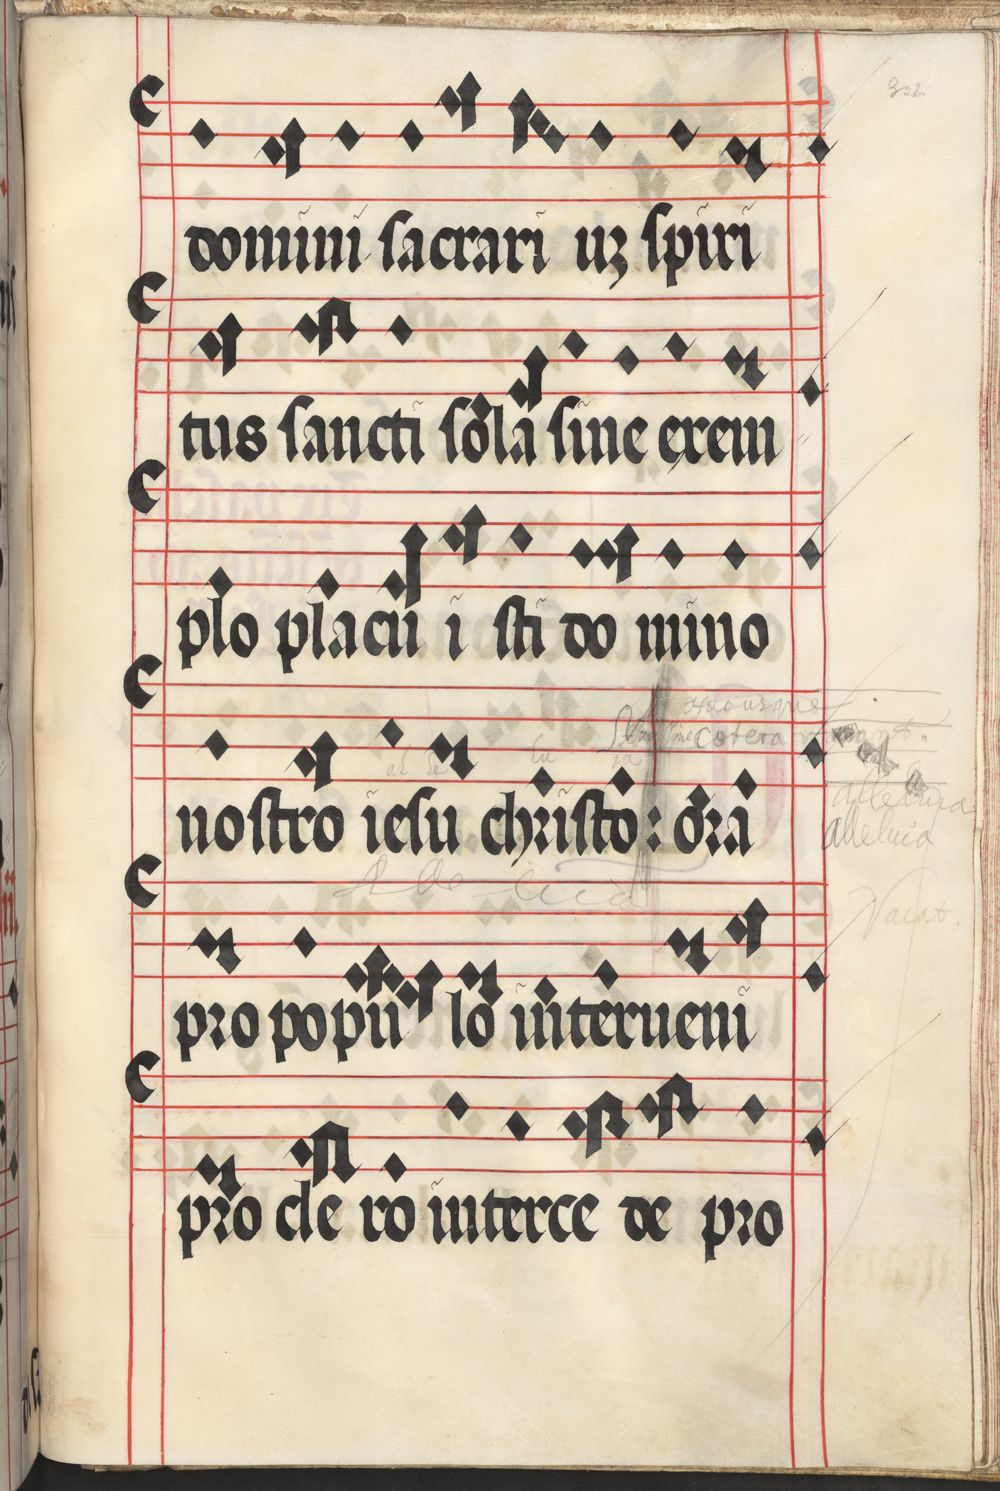 302
domini sacrari uʒ spiri
tus sancti sola sine exem
plo placu i sti do mino
nostro iesu christo : ora
alleluia
alleluia
Alleluia
Vacat.
pro popu lo interueni
pro cle ro interce de pro